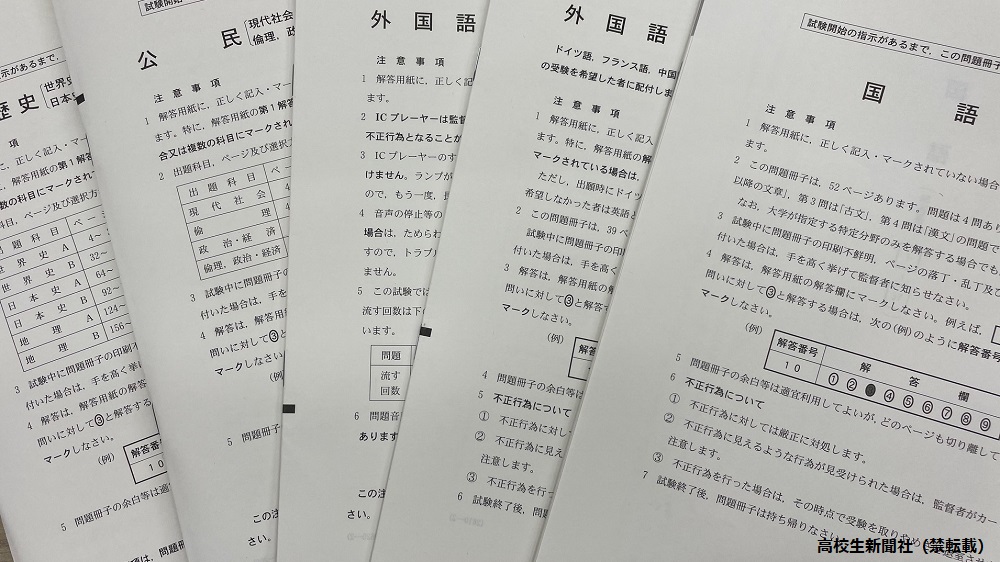 歴史
世界史
日本史
項
科目，ページ及び選択方
出題科目
世界史A 4～
世界史B 32～
日本史A 64～
日本史B 92～
地理A 124～
地理B 156～
3 試験中に問題冊子の印刷不
付いた場合は，手を高く挙げ
4 解答は，解答用紙の解答
問いに対して③と解答する
マークしなさい。
（例）
解答番号
10
5 問題冊子の余白等は適宜
試験開始
公民
現代社会
倫理，政
注意事項
1 解答用紙に，正しく記入・マー
ます。特に，解答用紙の第1解答
合又は複数の科目にマークされ
2 出題科目，ページ及び選択方
出題科目
現代社会
倫理
政治・経済
倫理，政治・経済
3 試験中に問題冊子の
付いた場合は，手を高
4 解答は，解答用
問いに対して③と
マークしなさい。
（例
5 問題冊子
この注
さい。
外国語
注意事項
1 解答用紙に，正しく記
ます。
2 ICプレーヤーは監督
不正行為となることが
3 ICプレーヤーのす
けません。ランプが
ので，もう一度，長
4 音声の停止等の
場合は，ためられ
すので，トラブル
ません。
5 この試験では
流す回数は下
います。
問題
流す
回数
6 問題音
あります
この注
さい。
外国語
ドイツ語，フランス語，中国
の受験を希望した者に配付しま
注意事項
1 解答用紙に，正しく記入
ます。特に，解答用紙の解
マークされている場合は，
ただし，出願時にドイツ
希望しなかった者は英語と
2 この問題冊子は，39ペ
試験中に問題冊子の印
付いた場合は，手を高く
3 解答は，解答用紙の解
問いに対して③と解答す
マークしなさい。
（例）
4 問題冊子の余白等は
5 不正行為について
① 不正行為に対し
② 不正行為に見え
注意します。
③ 不正行為を行っ
6 試験終了後，問題
試験開始の指示があるまで，この問題冊子
国語
注意事項
1 解答用紙に，正しく記入・マークされていない場合
ます。
2 この問題冊子は，52ページあります。問題は4問あり
以降の文章」，第3問は「古文」，第4問は「漢文」の問題で
なお，大学が指定する特定分野のみを解答する場合でも
3 試験中に問題冊子の印刷不鮮明，ページの落丁・乱丁及び
付いた場合は，手を高く挙げて監督者に知らせなさい。
4 解答は，解答用紙の解答欄にマークしなさい。例えば，
問いに対して③と解答する場合は，次の(例)のように解答番号
マークしなさい。
（例）
解答番号 解答欄
10 ① ② ④ ⑤ ⑥ ⑦ ⑧ ⑨
5 問題冊子の余白等は適宜利用してよいが，どのページも切り離して
6 不正行為について
① 不正行為に対しては厳正に対処します。
② 不正行為に見えるような行為が見受けられた場合は，監督者がカー
注意します。
③ 不正行為を行った場合は，その時点で受験を取りやめさせ
7 試験終了後，問題冊子は持ち帰りなさい。
高校生新聞社（禁転載）